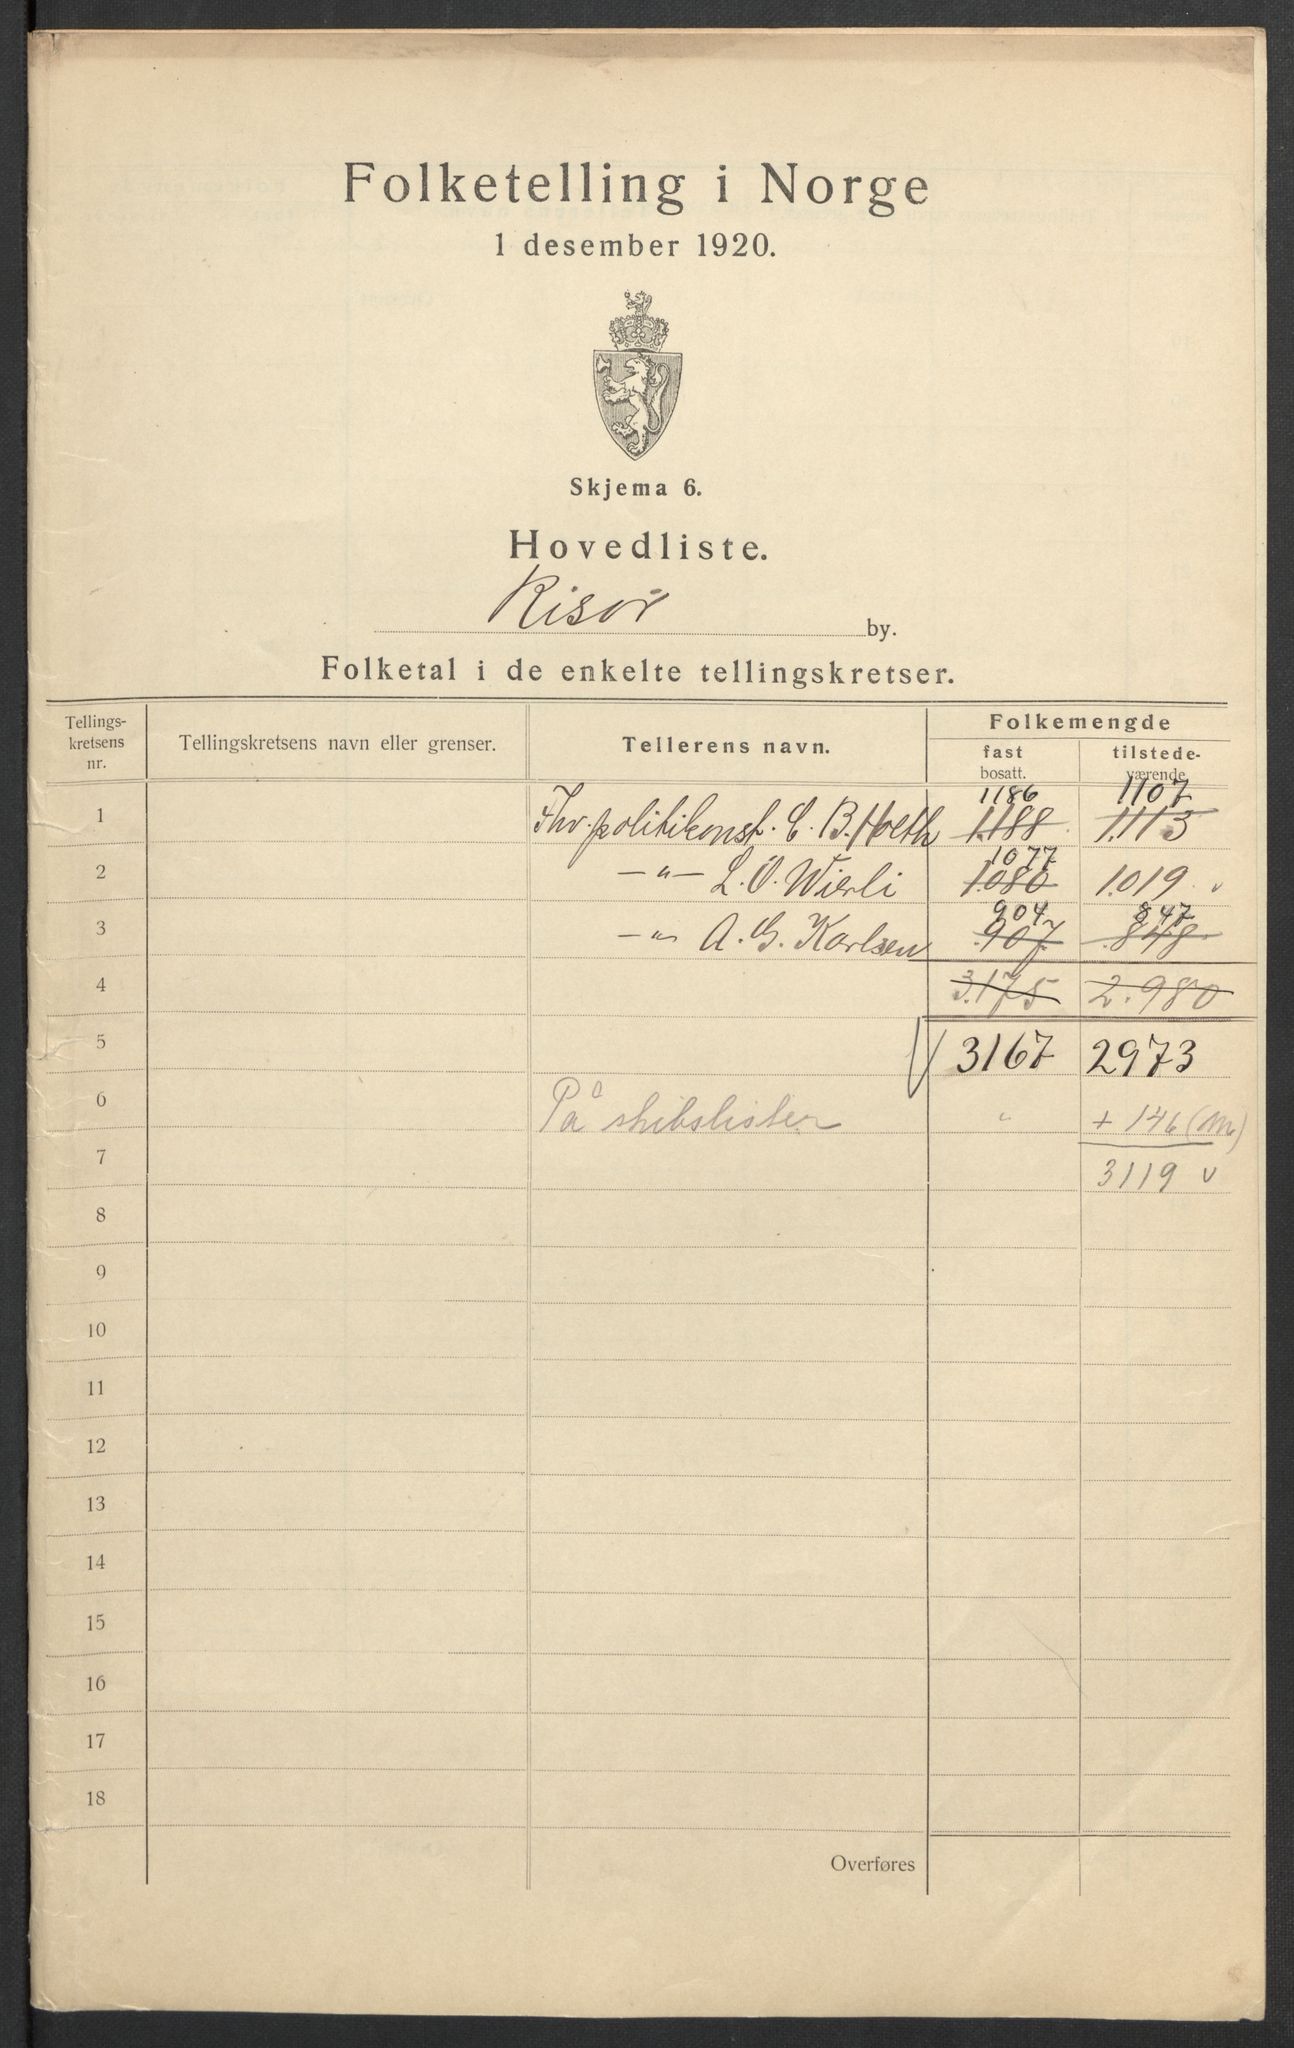 Folketelling i Norge
1 desember 1920.
Skjema 6.
Hovedliste.
Risør by.
Folketal i de enkelte tellingskretser.
Tellings-
kretsens
nr.
Tellingskretsens navn eller grenser.
Tellerens navn.
Folkemengde
fast
bosatt.
tilstede-
værende
1186 1107
1 Fhv. politikonst. C. B. Hoeth 1.188 1.113
1077
2 —"— L. O. Wierli 1.080 1.019 v
904 847
3 —"— A. G. Karlsen 907 848
4 3.175 2.980
5 3167 2973
6 På skibslister " + 146 (m)
7 3119 v
8
9
10
11
12
13
14
15
16
17
18
Overføres